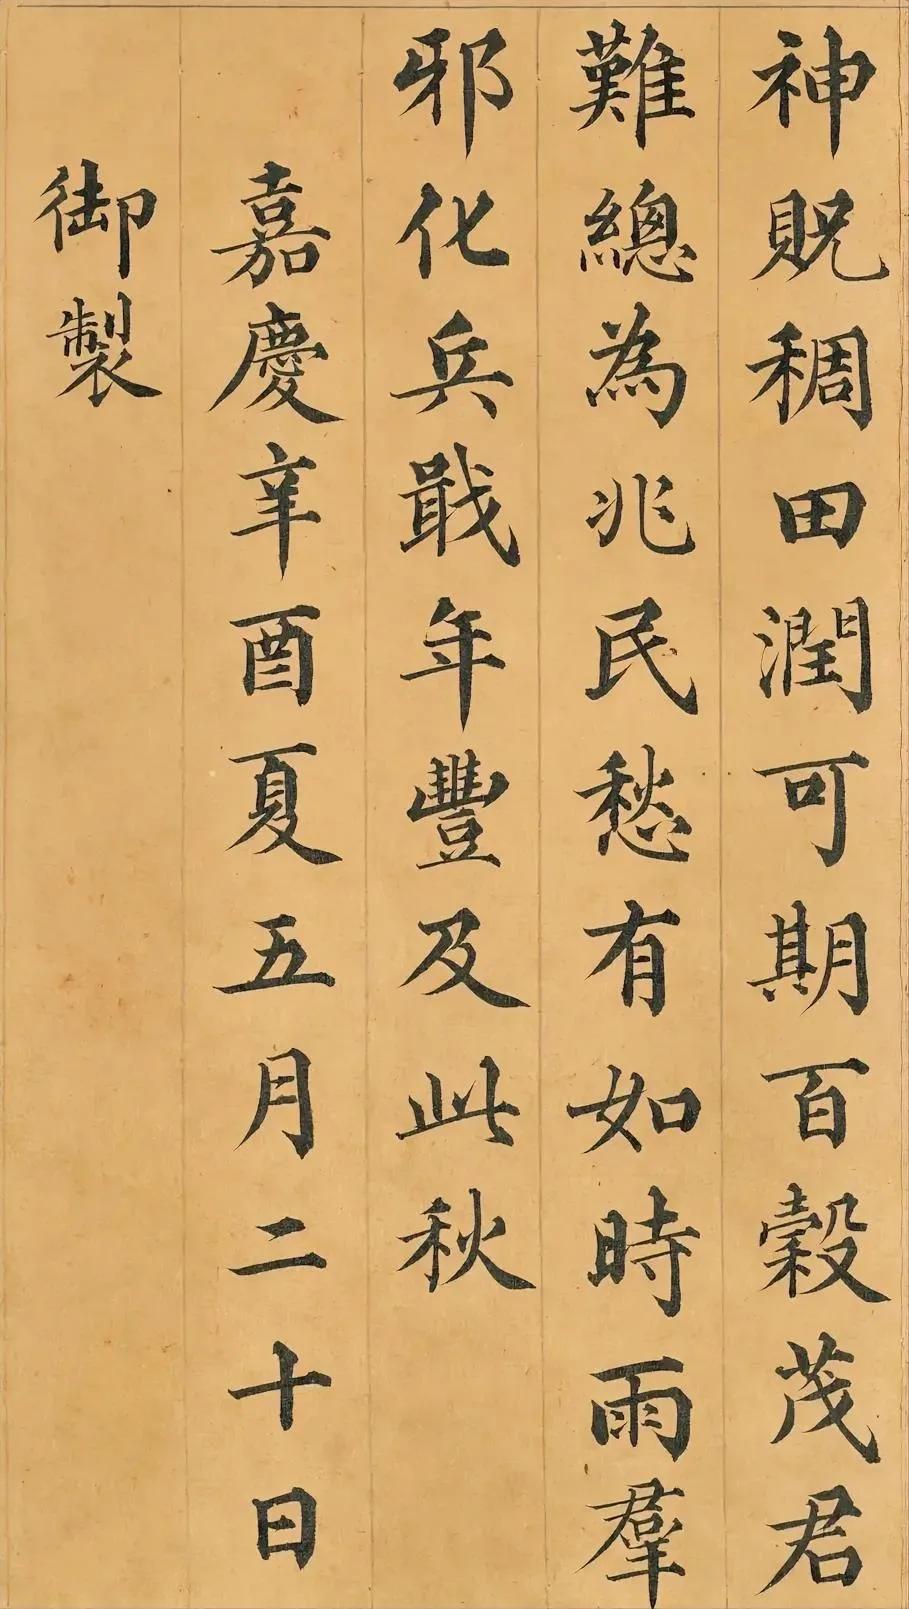 神貺稠田潤可期百穀茂君
難總為兆民愁有如時雨羣
邪化兵戢年豐及此秋
嘉慶辛酉夏五月二十日
御製